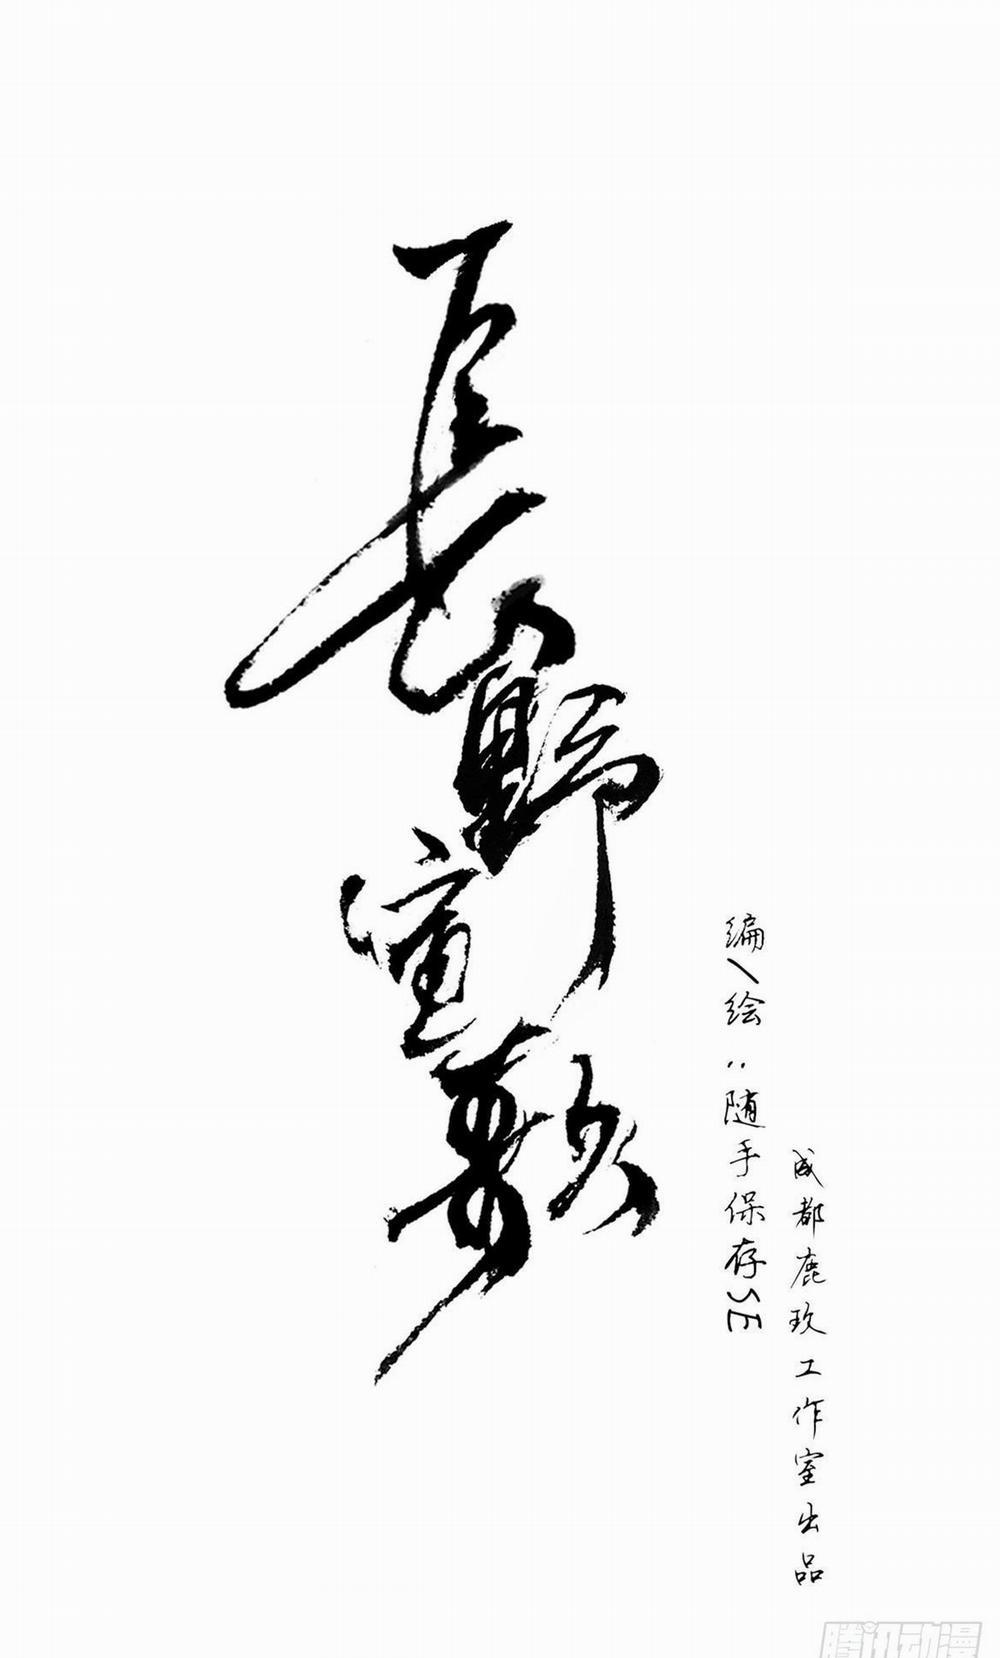 長野蛮歌
编/绘：随手保存SE
成都鹿玖工作室出品
腾讯动漫